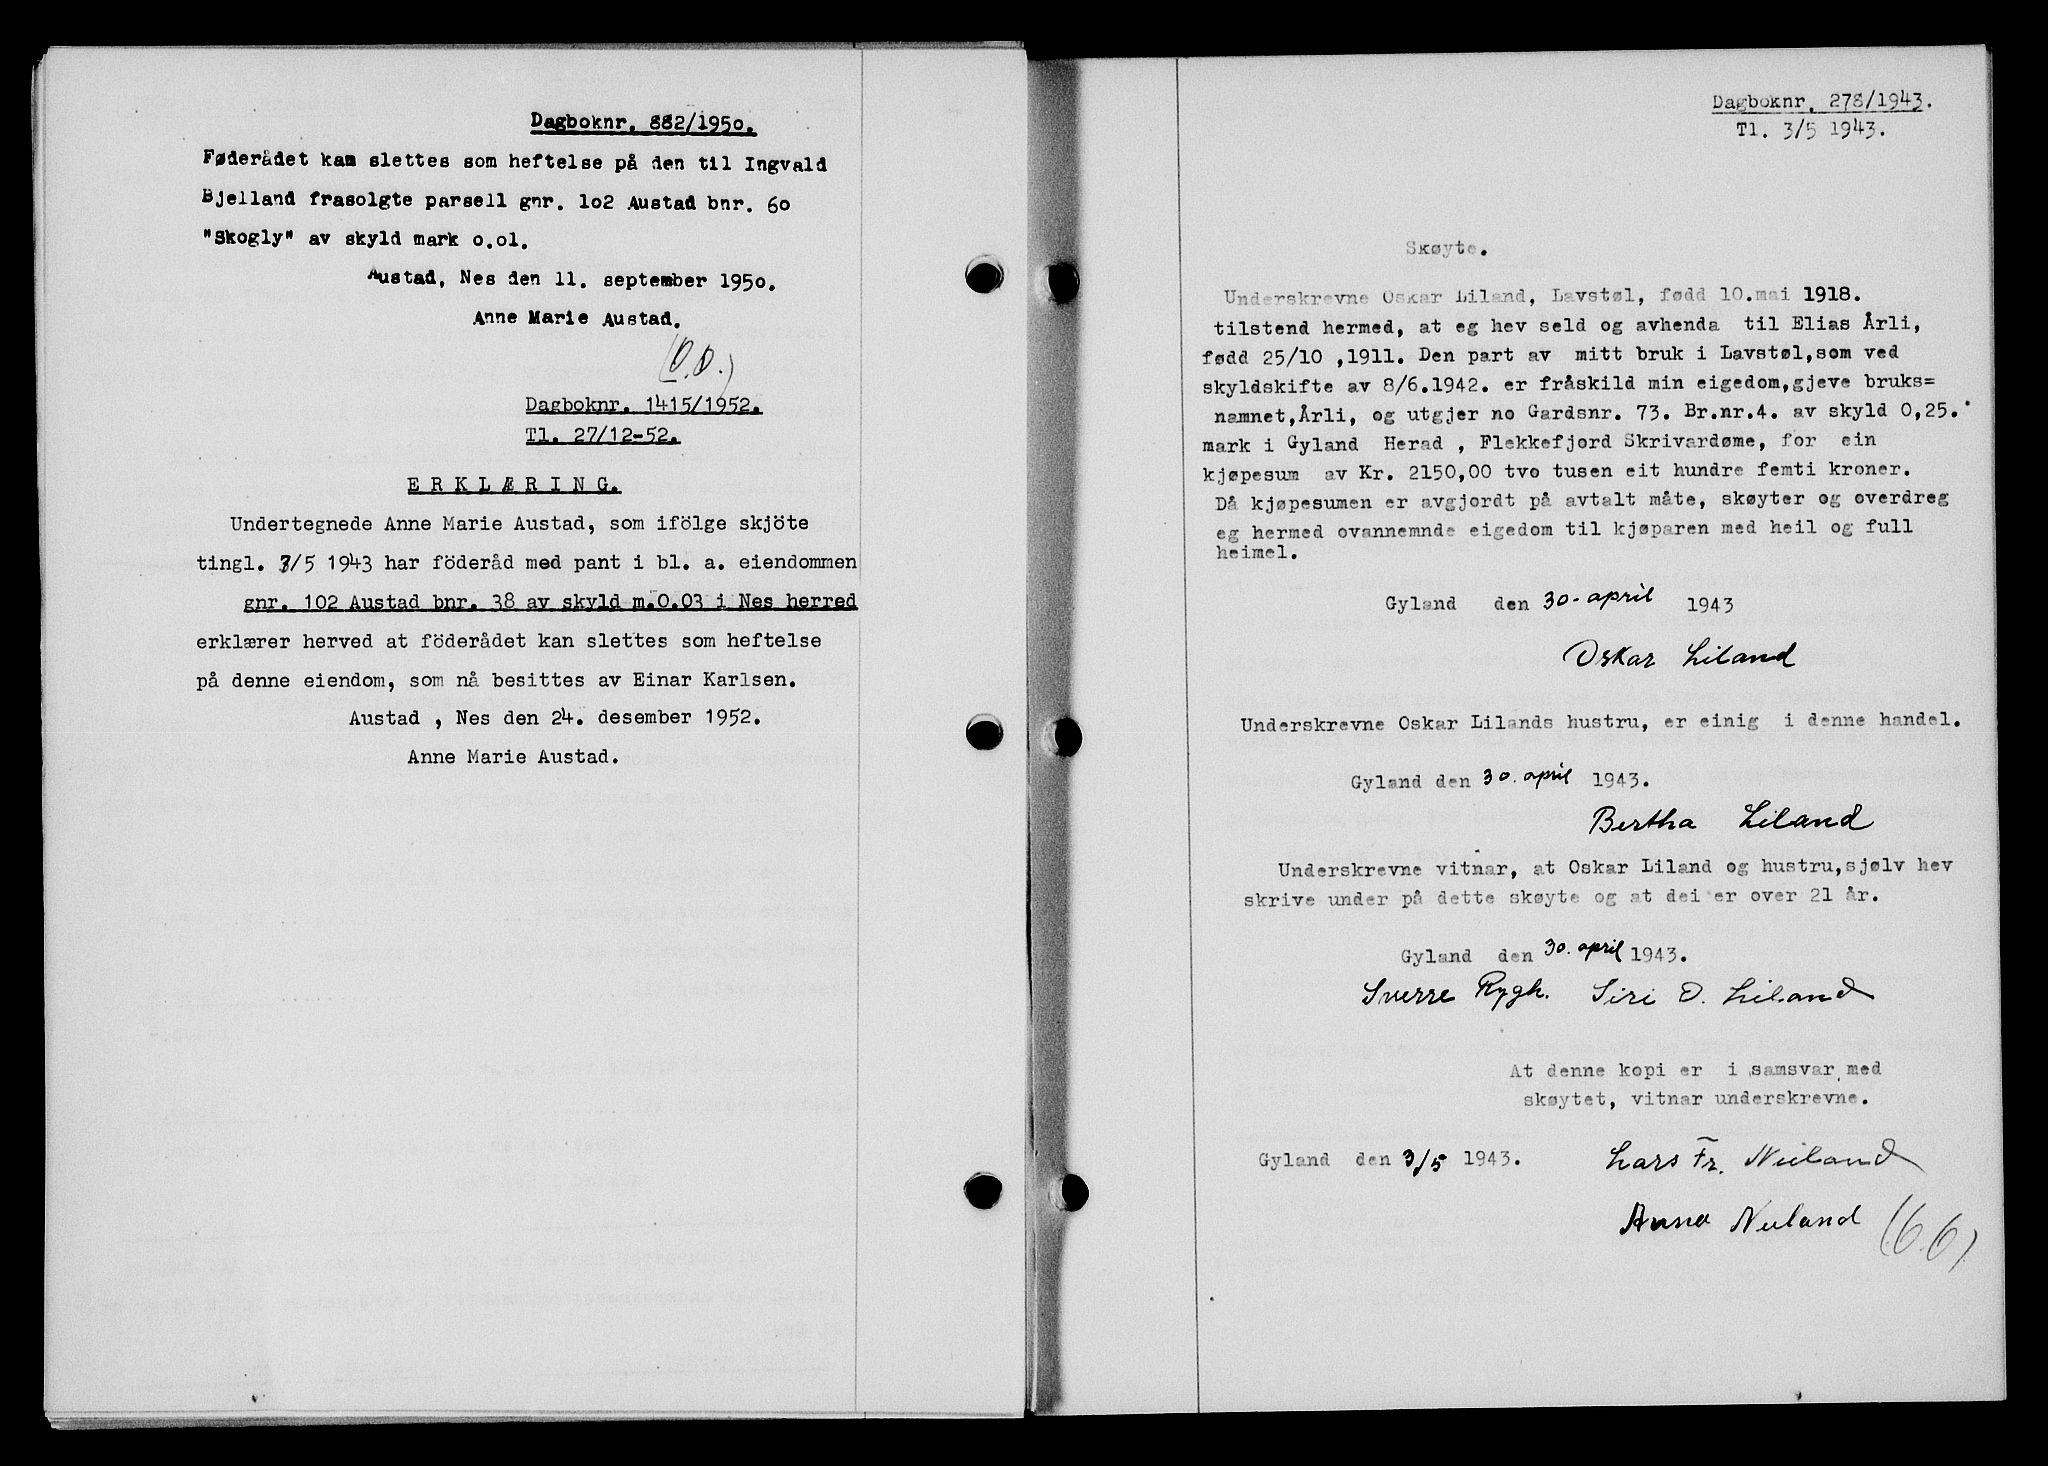 Dagboknr. 882/1950.
Føderådet kan slettes som heftelse på den til Ingvald
Bjelland frasolgte parsell gnr. 102 Austad bnr. 60
"Skogly" av skyld mark 0.01.
Austad, Nes den 11. september 1950.
Anne Marie Austad.
(O.O.)
Dagboknr. 1415/1952.
Tl. 27/12-52.
ERKLÆRING.
Undertegnede Anne Marie Austad, som ifölge skjöte
tingl. 3/5 1943 har föderåd med pant i bl. a. eiendommen
gnr. 102 Austad bnr. 38 av skyld m.0.03 i Nes herred
erklærer herved at föderådet kan slettes som heftelse
på denne eiendom, som nå besittes av Einar Karlsen.
Austad , Nes den 24. desember 1952.
Anne Marie Austad.
Dagboknr. 278/1943.
Tl. 3/5 1943.
Skøyte.
Underskrevne Oskar Liland, Lavstøl, fødd 10.mai 1918.
tilstend hermed, at eg hev seld og avhenda til Elias Årli,
fødd 25/10 ,1911. Den part av mitt bruk i Lavstøl,som ved
skyldskifte av 8/6.1942. er fråskild min eigedom,gjeve bruks=
namnet,Årli, og utgjer no Gardsnr. 73. Br.nr.4. av skyld 0,25.
mark i Gyland Herad , Flekkefjord Skrivardøme, for ein
kjøpesum av Kr. 2150,00 tvo tusen eit hundre femti kroner.
Då kjøpesumen er avgjordt på avtalt måte, skøyter og overdreg
eg hermed ovannemnde eigedom til kjøparen med heil og full
heimel.
Gyland den 30. april 1943
Oskar Liland
Underskrevne Oskar Lilands hustru, er einig i denne handel.
Gyland den 30. april 1943.
Bertha Liland
Underskrevne vitnar, at Oskar Liland og hustru,sjølv hev
skrive under på dette skøyte og at dei er over 21 år.
Gyland den 30. april 1943.
Sverre Rygh. Siri O. Liland
At denne kopi er i samsvar med
skøytet, vitnar underskrevne.
Gyland den 3/5 1943. Lars Fr. Nuland
Anna Nuland (6.6)